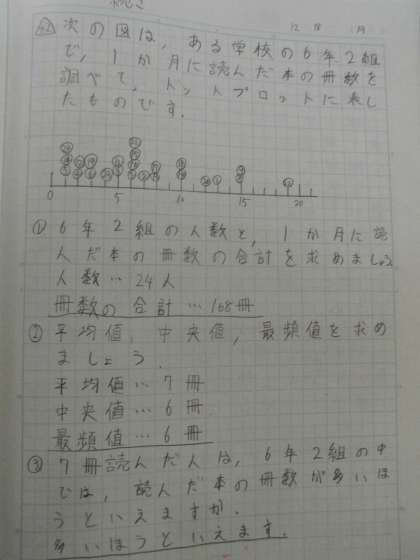 続き
12 18 (月)
次の図は、ある学校の6年2組
で、1か月に読んだ本の冊数を
調べて、ドットプロットに表し
たものです。
0 5 10 15 20
① 6年2組の人数と、1か月に読
んだ本の冊数の合計を求めましょう
人数…24人
冊数の合計…168冊
② 平均値、中央値、最頻値を求め
ましょう.
平均値…7冊
中央値…6冊
最頻値…6冊
③ 7冊読んだ人は、6年2組の中
では、読んだ本の冊数が多いほ
うといえますか.
多いほうといえます.